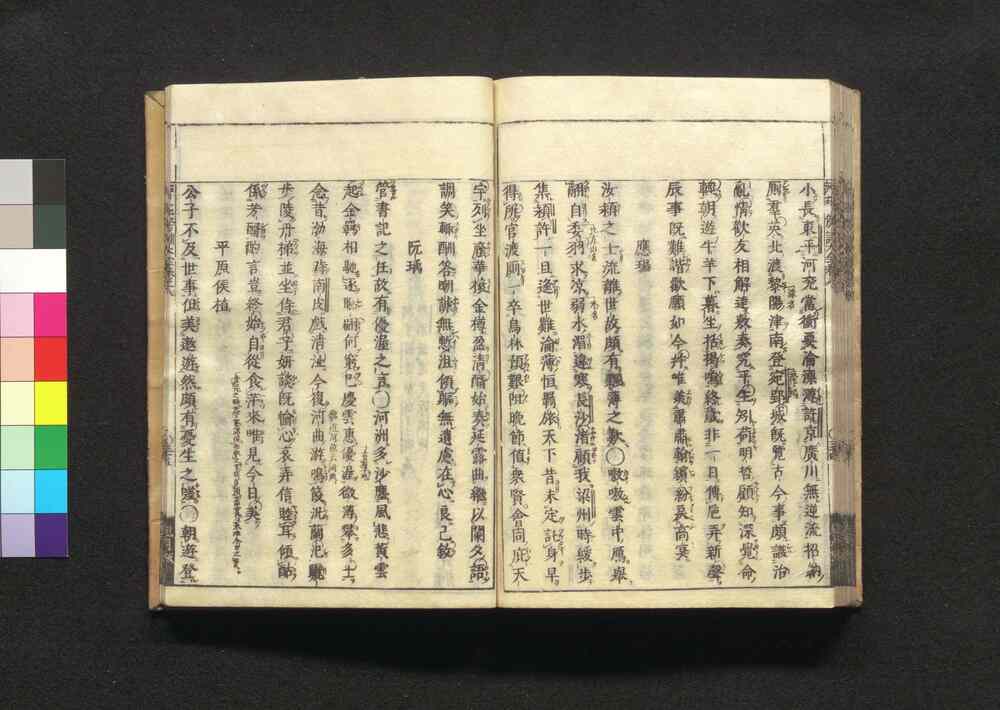 小長東平河兗當衝要淪漂薄許京廣川無逆流招納
厠羣英北渡黎陽津南登宛郢城既覽古今事頗識治
亂情歡友相解達敷奏究平生矧荷明哲顧知深覺命
輕朝遊牛羊下暮坐括揭鳴終歳非一日傳巵弄新聲
辰事既難諧歡願如今并唯羨肅肅翰繽紛戾高冥
應瑒
汝潁之士流離世故頗有飄薄之歎○嗷嗷雲中鴈舉
翮自委羽求涼弱水湄違寒長沙渚顧我梁川時緩歩
集潁許一旦逢世難淪薄恒羇旅天下昔未定託身早
得所官渡厠一卒烏林預艱阻晩節値衆賢會同庇天
宇列坐廕華榱金樽盈清醑始奏延露曲繼以闌夕語
調笑輒酬答嘲謔無慙沮傾軀無遺慮在心良已敘
阮瑀
管書記之任故有優渥之言○河洲多沙塵風悲黄雲
起金羈相馳逐聯翩何窮已慶雲惠優渥微薄攀多士
念昔渤海時南皮戲清沚今復河曲遊鳴葭泛蘭汜躧
歩陵丹梯並坐侍君子妍談既愉心哀弄信睦耳傾酤
係芳醑酌言豈終始自從食苹來唯見今日美
平原侯植
公子不及世事但美遨遊然頗有憂生之嗟○朝遊登